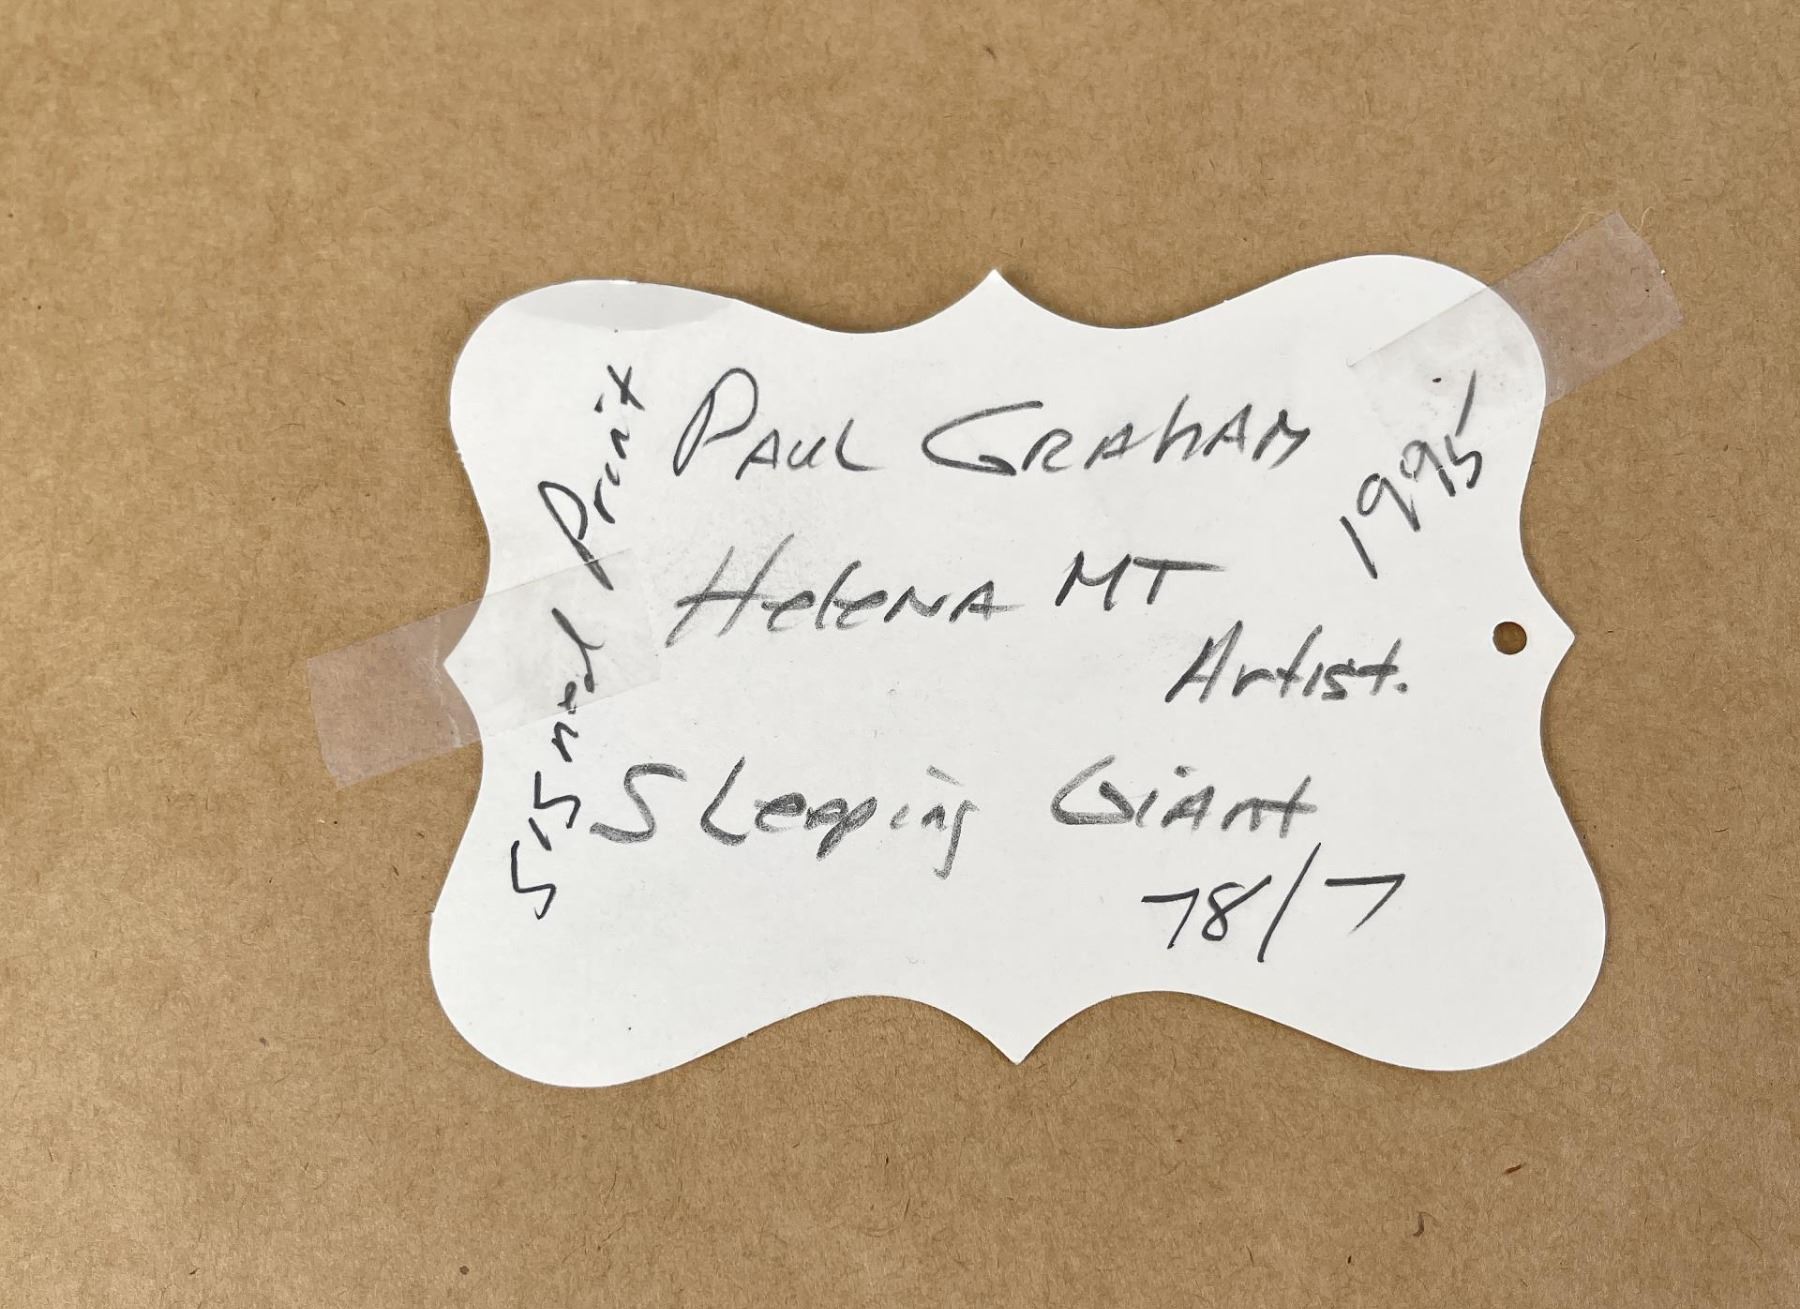 Signed Print
Paul Graham
1995
Helena MT
Artist.
Sleeping Giant
78/7